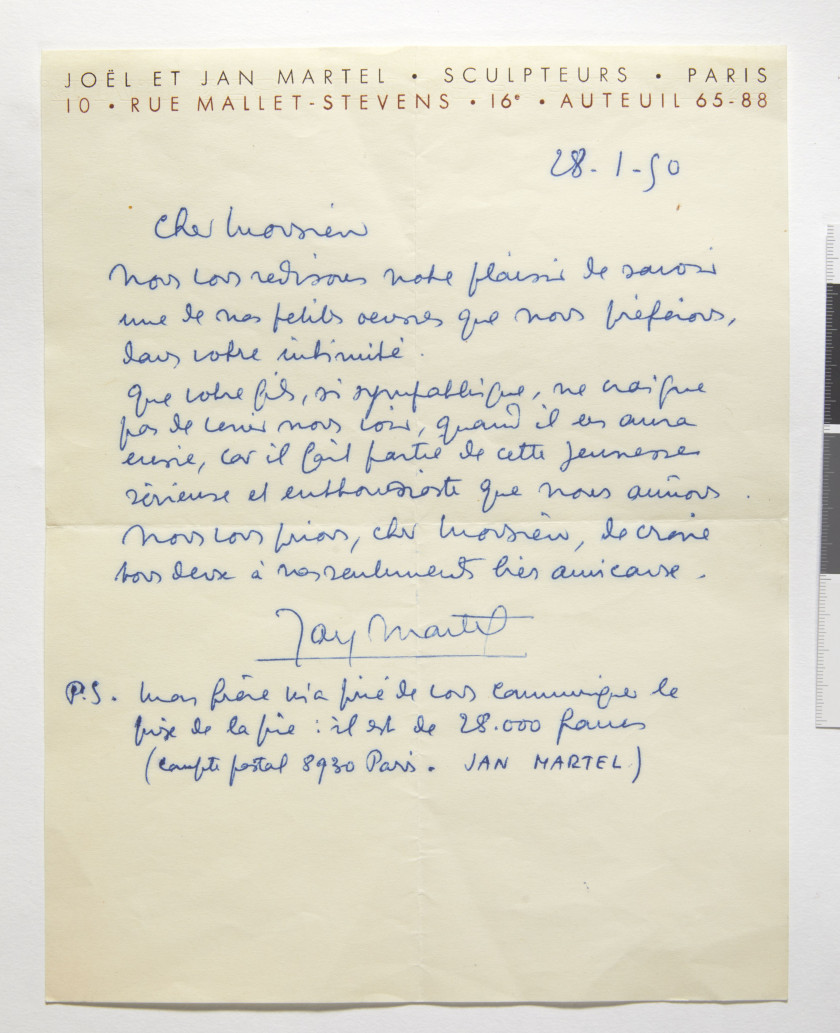 JOËL ET JAN MARTEL • SCULPTEURS • PARIS
10 • RUE MALLET-STEVENS • 16e • AUTEUIL 65-88
28-1-50
Cher Monsieur
Nous vous redisons notre plaisir de savoir
une de nos petites oeuvres que nous préférions,
dans votre intimité.
Que votre fils, si sympathique, ne craigne
pas de venir nous voir, quand il en aura
envie, car il fait partie de cette jeunesse
sérieuse et enthousiaste que nous aimons.
Nous vous prions, cher Monsieur, de croire
tous deux à nos sentiments bien amicaux.
Jan Martel
P.S. Mon frère m'a prié de vous communiquer le
prix de la pie : il est de 28.000 francs
(compte postal 8930 Paris. JAN MARTEL)